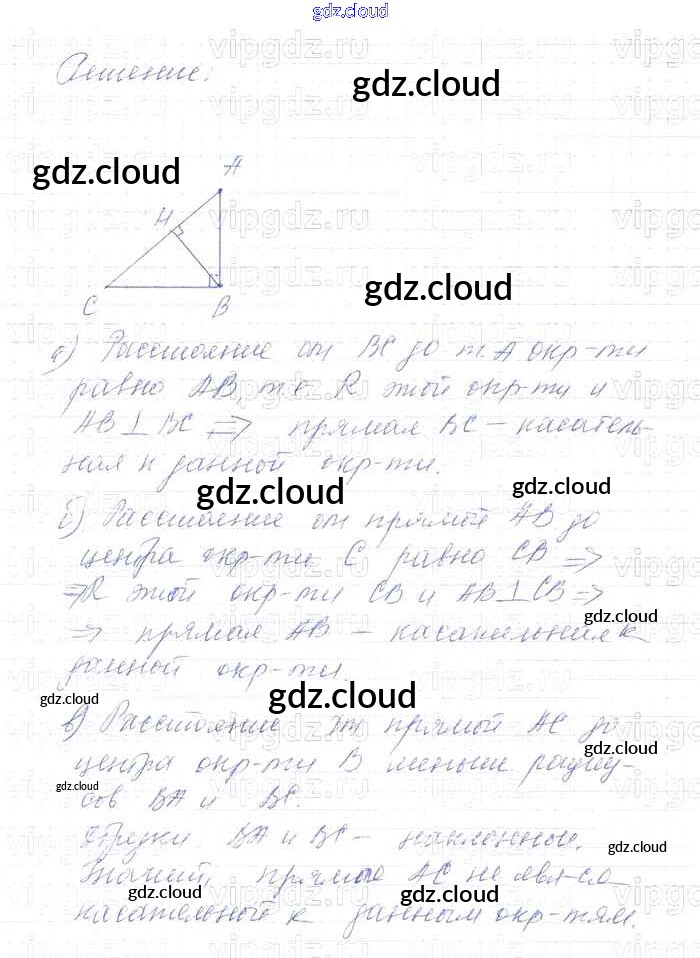 gdz.cloud
vipgdz.ru
Решение:
gdz.cloud
gdz.cloud
A
H
gdz.cloud
C B
а) Расстояние от BC до т. A окр-ти
равно AB, т.е. R этой окр-ти и
AB ⊥ BC ⇒ прямая BC – касатель-
ная к данной окр-ти.
gdz.cloud
gdz.cloud
б) Расстояние от прямой AB до
центра окр-ти C равно CB ⇒
⇒ R этой окр-ти CB и AB ⊥ CB ⇒
gdz.cloud
⇒ прямая AB – касательная к
данной окр-ти.
gdz.cloud
gdz.cloud
в) Расстояние от прямой AC до
gdz.cloud
центра окр-ти B меньше радиу-
gdz.cloud
сов BA и BC.
Отрезки BA и BC – наклонные.
gdz.cloud
Значит, прямая AC не явл-ся
gdz.cloud
gdz.cloud
касательной к данным окр-тям.